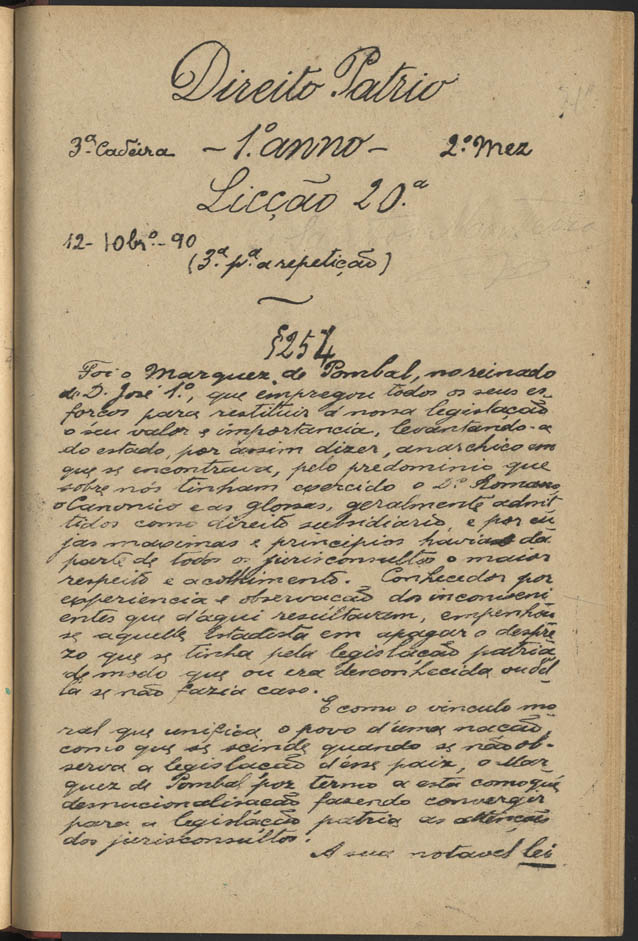 Direito Patrio
3ª Cadeira - 1.º anno - 2.º Mez
Licção 20.ª
12-10br.º-90
(3.ª p.ª a repetição)
§254
Foi o Marquez de Pombal, no reinado
de D. José 1.º, que empregou todos os seus es-
forços para restituir á nossa legislação
o seu valor e importancia, levantando-a
do estado, por assim dizer, anarchico em
que se encontrava, pelo predominio que
sobre nós tinham exercido o D.º Romano
o Canonico e as glosas, geralmente admit
tidos como direito subsidiario, e por cu
jas maximas e principios havia da
parte de todos os jurisconsultos o maior
respeito e acolhimento. Conhecedor por
experiencia e observação dos inconveni
entes que d'aqui resultavam, empenhou
se aquelle Estadista em apagar o despre
zo que se tinha pela legislação patria
de modo que ou era desconhecida ou d'el
la se não fazia caso.
E como o vinculo mo
ral que unifica o povo d'uma nação
como que se scinde quando se não ob-
serva a legislação d'esse paiz, o Mar
quez de Pombal poz termo a esta como que
desnacionalisação fazendo convergir
para a legislação patria as attenções
dos jurisconsultos.
A sua notavel lei